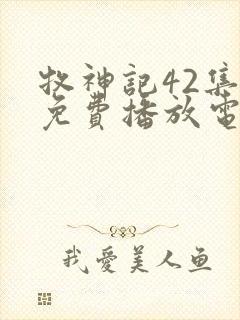 牧神記42集
免費播放電
我愛美人鱼